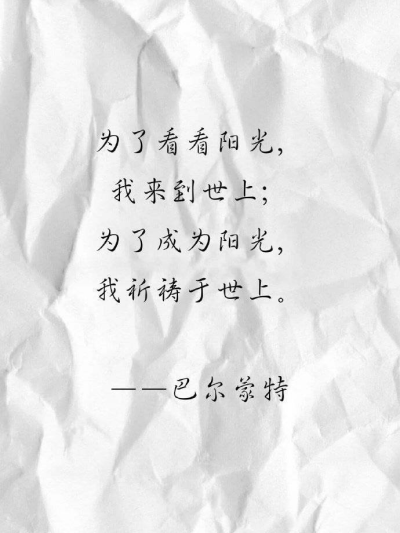 为了看看阳光，
我来到世上；
为了成为阳光，
我祈祷于世上。
——巴尔蒙特